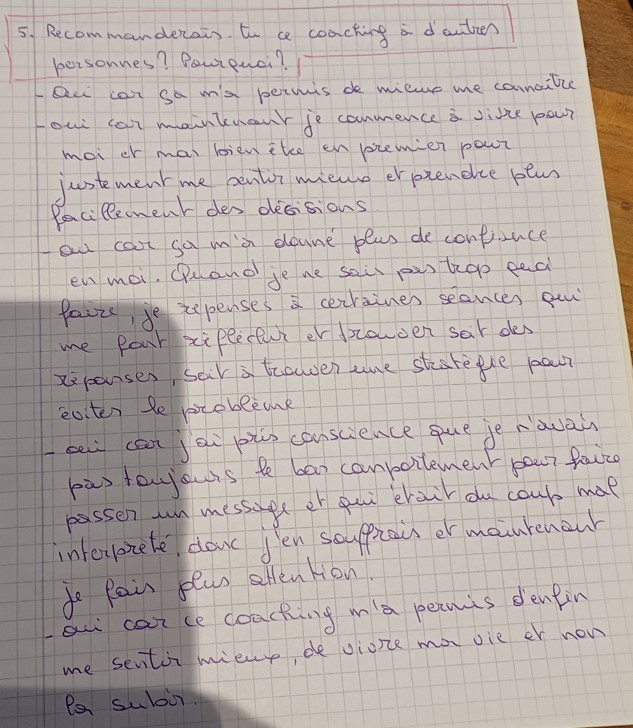 5. Recommanderais-tu ce coaching à d'autres
personnes? Pourquoi?
- Oui car ça m'a permis de mieux me connaître
- oui car maintenant je commence à vivre pour
moi et mon bien être en premier pour
justement me sentir mieux et prendre plus
facillement des décisions
- oui car ça m'a donné plus de confiance
en moi. Quand je ne sais pas trop quoi
faire, je repenses à certaines séances qui
me font réfléchir et trouver soit des
réponses, soit à trouver une stratégie pour
éviter le problème
- oui car j'ai pris conscience que je n'avais
pas toujours le bon comportement pour faire
passer un message et qui était du coup mal
interprété, donc j'en souffrais et maintenant
je fais plus attention.
- oui car ce coaching m'a permis d'enfin
me sentir mieux, de vivre ma vie et non
la subir.